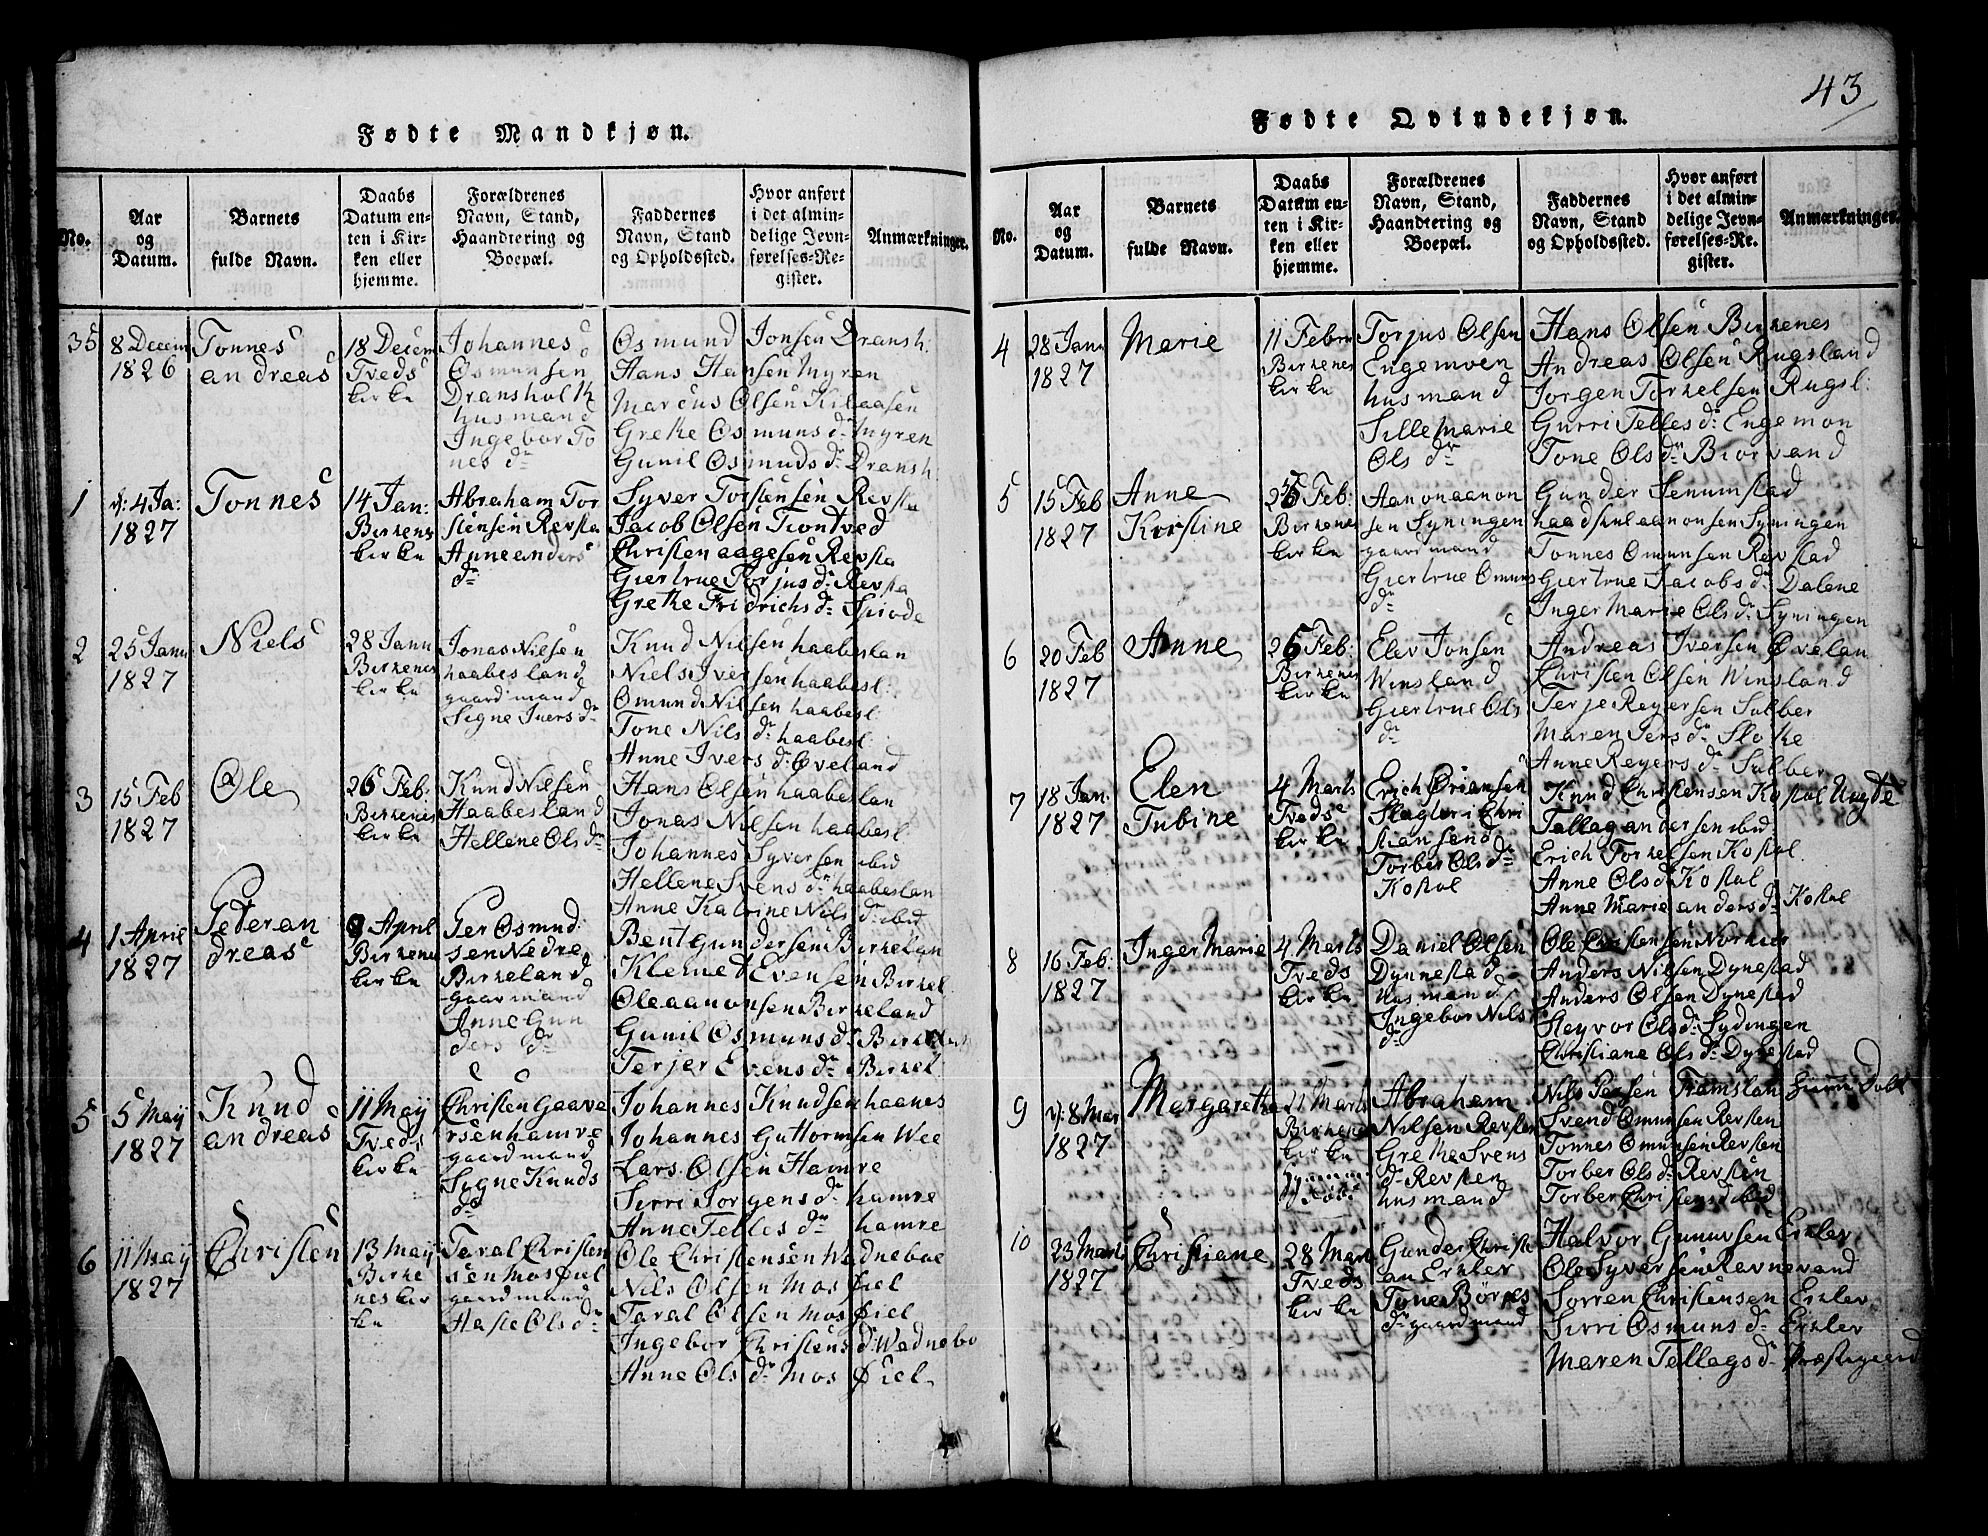 43
Fødte Mandkjøn.
No.
Aar
og
Datum.
Barnets
fulde Navn.
Daabs
Datum en-
ten i Kir-
ken eller
hjemme.
Forældrenes
Navn, Stand,
Haandtering og
Boepæl.
Faddernes
Navn, Stand
og Opholdssted.
Hvor anført
i det almin-
delige Jevn-
førelses-Re-
gister.
Anmærkninger.
35
8 Decem
1826
Tonnes
andreas
18 Decem
Tveds
kirke
Johannes
Osmunsen
Dransholt
husmand
Ingebor To
nes dr
Osmund Jonsen Dransh:
Hans Hansen Myren
Marcus Olsen Kilaasen
Grethe Osmunsdr Myren
Gunil Osmudsdr Dransh:
1
d: 4 Ja:
1827
Tonnes
14 Jan:
Birkenes
kirke
Abraham Tor
stensen Revsta
Anne anders
dr
Syver Torstensen Revsta
Jacob Olsen Tiontved
Christen aagesen Revsta
Giertrue Torjusdr: Revsta
Grethe Fridrichsdr Spiode
2
25 Janu
1827
Niels
28 Janu
Birkenes
kirke
Jonas Nilsen
haabesland
gaardmand
Signe Iversdr
Knud Nilsen haabeslan
Niels Iversen haabesl:
Omund Nilsen haabesl:
Tone Nilsdr haabesl:
Anne Iversdr: Øveland
3
15 Feb
1827
Ole
26 Feb:
Birkenes
kirke
Knud Nilsen
Haabesland
Hellene Olsdr
Hans Olsen haabeslan
Jonas Nilsen haabesl:
Johannes Syversen ibid
Hellene Svensdr haabeslan
Anne Katrine Nilsdr: ibid
4
1 April
1827
Peder an
dreas
8 April
Birkenes
kirke
Per Osmud
sen Nedre
Birkeland
gaarmand
Anne Gun
ders dr
Bent Gundersen Birkelan
Klemed Evensen Birkel
Ole aanonsen Birkeland
Gunil Osmunsdr Birkel
Terjer Evensdr Birkel
5
5 Maij
1827
Knud
andreas
11 Maij
Tveds
kirke
Christen Gaave
rsen hamre
gaardmand
Signe Knuds
dr
Johannes Knudsen haanes
Johannes Guttormsen Wee
Lars Olsen Hamre
Sirri Jorgensdr hamre
Anne Tellesdr hamre
6
11 Maij
1827
Christen
13 Maij
Birke
nes kir
ke
Taral Christen
sen Mosfiel
gaardmand
Aaste Olsdr
Ole Christensen Wedneboe
Nils Olsen Mosfiel
Taral Olsen Mosfiel
Ingebor Christensdr: Wednebo
Anne Olsdr Mosfiel
Fødte Qvindekjøn.
No.
Aar
og
Datum.
Barnets
fulde Navn.
Daabs
Datum en-
ten i Kir-
ken eller
hjemme.
Forældrenes
Navn, Stand,
Haandtering og
Boepæl.
Faddernes
Navn, Stand
og Opholdssted.
Hvor anført
i det almin-
delige Jevn-
førelses-Re-
gister.
Anmærkninger.
4
28 Janu
1827
Marie
11 Febru
Birkenes
kirke
Torjus Olsen
Engemoen
husmand
Sille Marie
Ols dr
Hans Olsen Birkenes
Andreas Olsen Rugsland
Jorgen Torkelsen Rugsl:
Gurri Tellesdr: Engemon
Tone Olsdr Biorvand
5
15 Feb
1827
Anne
Kirstine
25 Feb:
Birkenes
kirke
Aanon aanon
sen Syningen
gaardmand
Giertrue Omuns
dr
Gunder Senumstad
haadskul aanonsen Syningen
Tonnes Omunsen Revstad
Giertrue Jacobsdr: Dalene
Inger Marie Olsdr: Syningen
6
20 Feb
1827
Anne
25 Feb:
Birkenes
kirke
Elev Jonsen
Winsland
Giertrue Ols
dr
Andreas Iversen Øvelan
Christen Olsen Winsland
Terje Reyersen Sulber
Maren Persdr Stokke
Anne Reyersdr Sulber
7
18 Jan:
1827
Elen
Tubine
4 Marts
Tveds
kirke
Erich
Christensen
Torber Olsdr
Kostøl
Knud Christensen Kostøl Uegte
Tellag andersen ibid
Erich Torkelsen Kostøl
Anne Olsd Kostøl
Anne Marie andersdr: Kostøl
8
16 Feb:
1827
Inger Marie
4 Marts
Tveds
kirke
Daniel Olsen
Dynnestad
husmand
Ingebor Nils
dr
Ole Christensen
Anders Nilsen Dynestad
Anders Olsen Dynestad
Steyvor Olsdr: Sydingen
Christiane Olsdr: Dynestad
9
d: 8 Mar
1827
Margarethe
11 Marts
Birkenes
kirke
Abraham
Nilsen Revsten
Grethe Svens
dr Revsten
husmand
Nils Persen Tramslan
Svend Omunsen Revsten
Tonnes Omunsen Revsten
Torber Olsdr: Revsten
Torber Christensd ibid
10
23 Marts
1827
Christiane
28 Mart
Tveds
kirke
Gunder Christi
an Erklev
Tone Børges
dr gaardmand
Halvor Gunursen Erklev
Ole Syversen Revnevand
Sorren Christensen Erklev
Sirri Osmunsdr: Erklev
Maren Tellagsdr Præstegaard